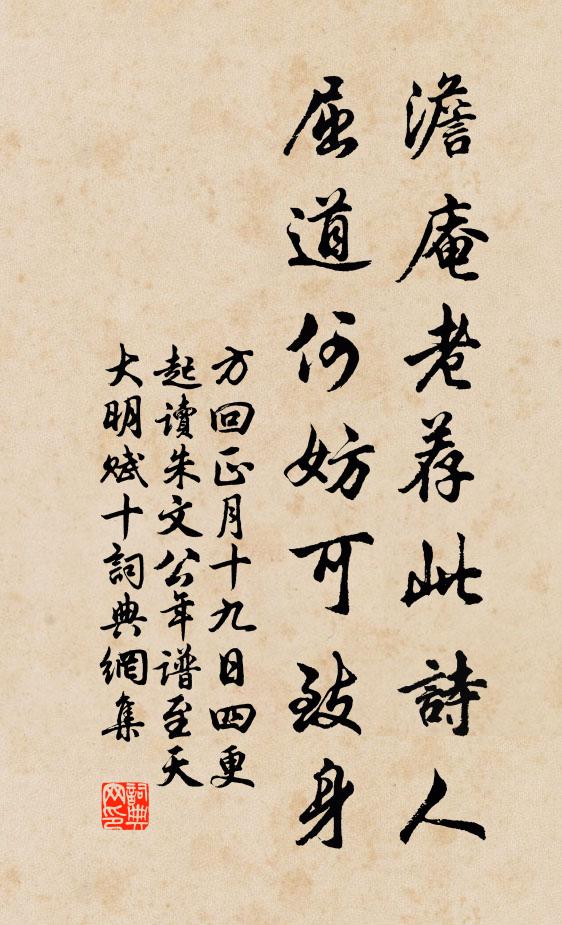 澹庵老荐此詩人
屈道何妨可致身
方回正月十九日四更
起讀朱文公年谱至天
大明赋十詞典網集
詞典网印